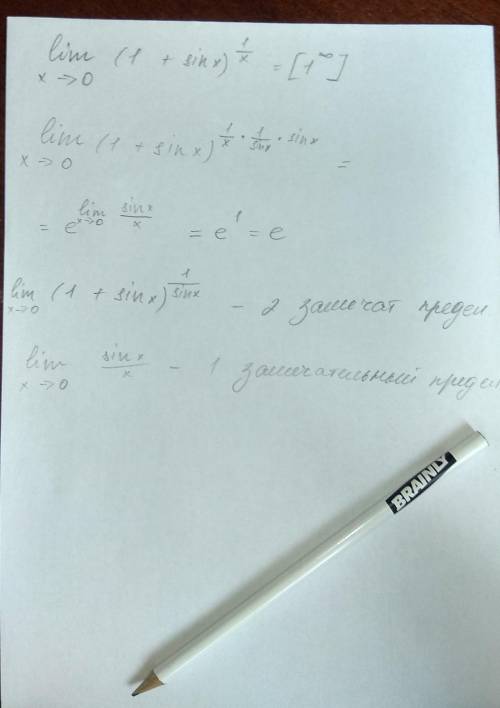 lim (1 + sinx)^{1/x} = [1^∞]
x→0
lim (1 + sinx)^{1/x · 1/sinx · sinx} =
x→0
= e^{lim x→0 sinx/x} = e^1 = e
lim (1 + sinx)^{1/sinx} - 2 замечат предел
x→0
lim sinx/x - 1 замечательный предел
x→0
BRAINLY